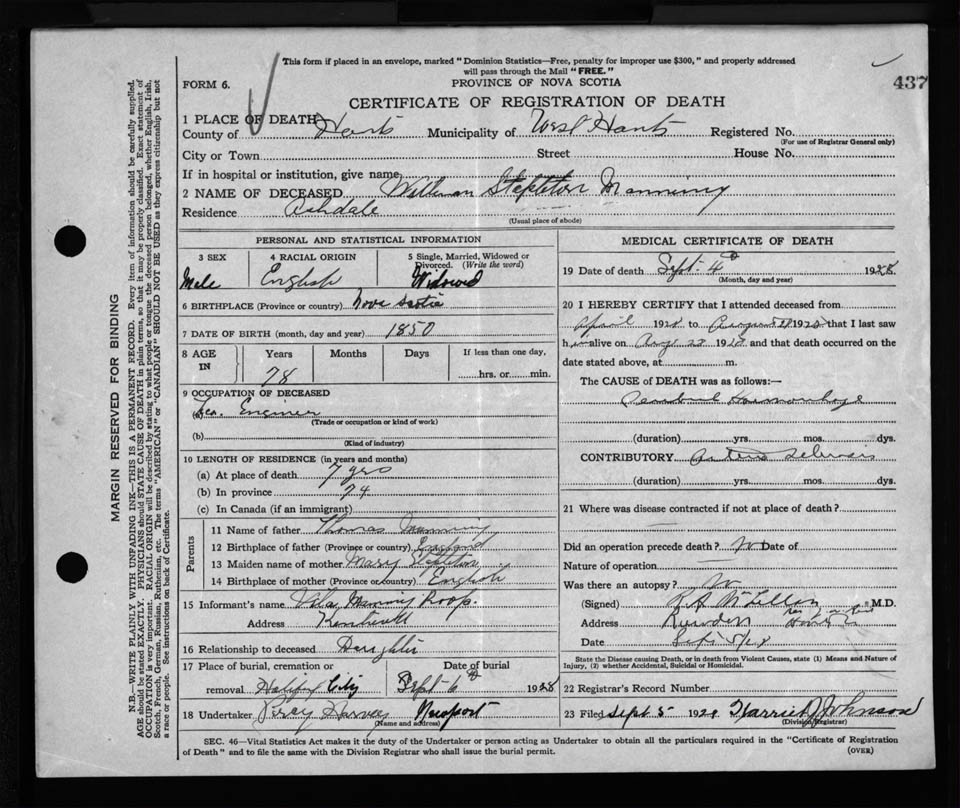 This form if placed in an envelope, marked "Dominion Statistics—Free, penalty for improper use $300," and properly addressed
will pass through the Mail "FREE."
FORM 6.
PROVINCE OF NOVA SCOTIA
437
CERTIFICATE OF REGISTRATION OF DEATH
1 PLACE OF DEATH
County of Hants Municipality of West Hants Registered No.
(For use of Registrar General only)
City or Town Street House No.
If in hospital or institution, give name
2 NAME OF DECEASED Stapleton Manning
Residence Ashdale
(Usual place of abode)
PERSONAL AND STATISTICAL INFORMATION
3 SEX 4 RACIAL ORIGIN 5 Single, Married, Widowed or Divorced. (Write the word)
Male English Widowed
6 BIRTHPLACE (Province or country) Nova Scotia
7 DATE OF BIRTH (month, day and year) 1850
8 AGE IN Years Months Days If less than one day,
78 hrs. or min.
9 OCCUPATION OF DECEASED
(a) Engineer
(Trade or occupation or kind of work)
(b)
(Kind of industry)
10 LENGTH OF RESIDENCE (in years and months)
(a) At place of death 7 yrs
(b) In province 74
(c) In Canada (if an immigrant)
Parents
11 Name of father Thomas Manning
12 Birthplace of father (Province or country) England
13 Maiden name of mother Mary Stapleton
14 Birthplace of mother (Province or country) English
15 Informant's name Manning Roop
Address Kentville
16 Relationship to deceased Daughter
17 Place of burial, cremation or Date of burial
removal Halifax City Sept 6 1928
18 Undertaker Percy Harvey Newport
(Name and address)
MEDICAL CERTIFICATE OF DEATH
19 Date of death Sept 4 1928
(Month, day and year)
20 I HEREBY CERTIFY that I attended deceased from
April 1928 to August 1928 that I last saw
him alive on Aug 22 1928 and that death occurred on the
date stated above, at m.
The CAUSE of DEATH was as follows:—
Cerebral Haemorrhage
(duration) yrs. mos. dys.
CONTRIBUTORY Arterio Sclerosis
(duration) yrs. mos. dys.
21 Where was disease contracted if not at place of death?
Did an operation precede death? No Date of
Nature of operation
Was there an autopsy? No
(Signed) McLellan M.D.
Address
Date Sept 5/28
State the Disease causing Death, or in death from Violent Causes, state (1) Means and Nature of
Injury, (2) whether Accidental, Suicidal or Homicidal.
22 Registrar's Record Number
23 Filed Sept 5 1928 Harriet J Johnson
(Division Registrar)
SEC. 46—Vital Statistics Act makes it the duty of the Undertaker or person acting as Undertaker to obtain all the particulars required in the "Certificate of Registration
of Death" and to file the same with the Division Registrar who shall issue the burial permit.
(OVER)
MARGIN RESERVED FOR BINDING
N.B.—WRITE PLAINLY WITH UNFADING INK—THIS IS A PERMANENT RECORD. Every item of information should be carefully supplied.
AGE should be stated EXACTLY. PHYSICIANS should STATE CAUSE OF DEATH in plain terms, so that it may be properly classified. Exact statement of
OCCUPATION is very important. RACIAL ORIGIN will be described by stating to what people or tongue the deceased person belonged, whether English, Irish,
Scotch, French, German, Russian, Ruthenian, etc. The terms "AMERICAN" or "CANADIAN" SHOULD NOT BE USED as they express citizenship but not
a race or people. See instructions on back of Certificate.